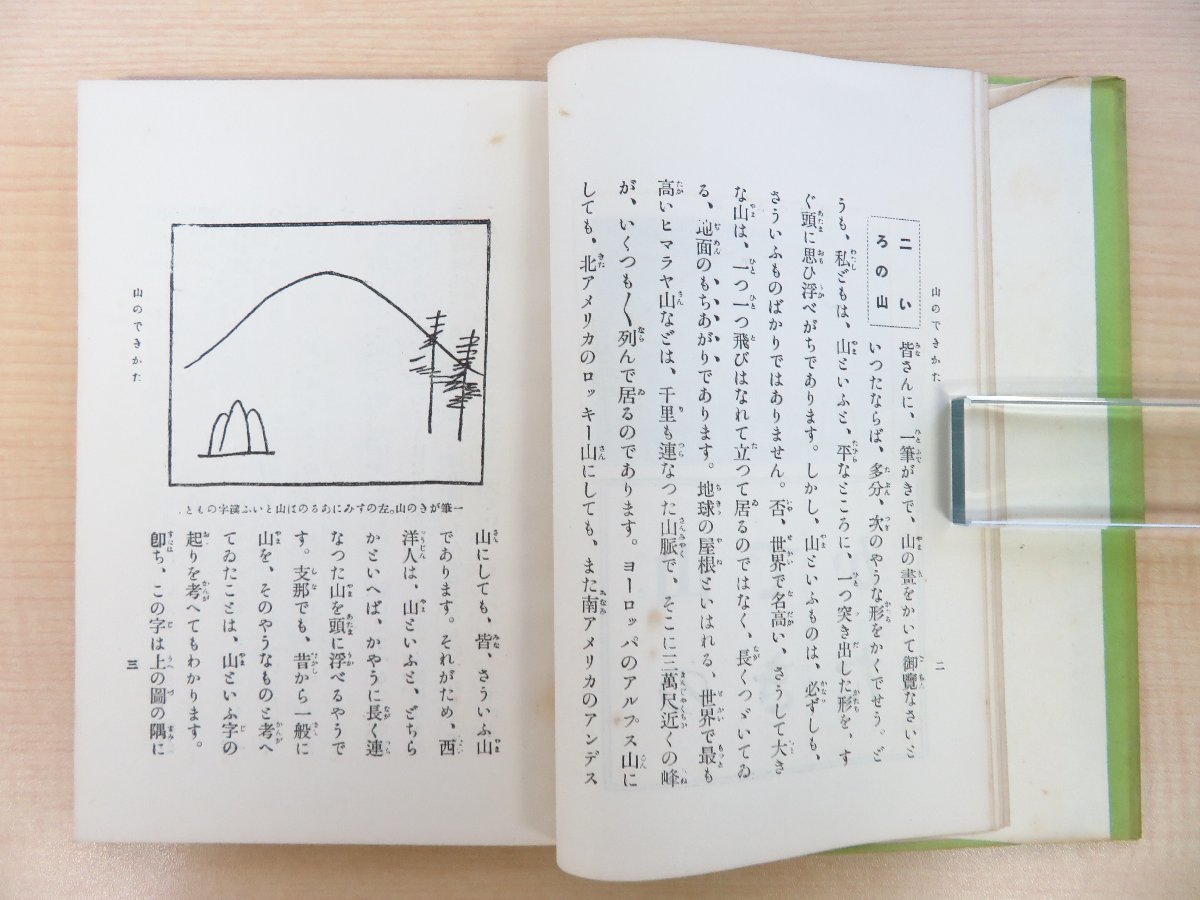 山のできかた
二
二いろの山
皆さんに、一筆がきで、山の畫をかいて御覽なさいと
いつたならば、多分、次のやうな形をかくでせう。ど
うも、私どもは、山といふと、平なところに、一つ突き出した形を、す
ぐ頭に思ひ浮べがちであります。しかし、山といふものは、必ずしも、
さういふものばかりではありません。否、世界で名高い、さうして大き
な山は、一つ一つ飛びはなれて立つて居るのではなく、長くつゞいてゐ
る、地面のもちあがりであります。地球の屋根といはれる、世界で最も
高いヒマラヤ山などは、千里も連なつた山脈で、そこに三萬尺近くの峰
が、いくつも〱列んで居るのであります。ヨーロッパのアルプス山に
しても、北アメリカのロッキー山にしても、また南アメリカのアンデス
一筆がきの山。左のすみにあるのは山といふ漢字のもと。
山にしても、皆、さういふ山
であります。それがため、西
洋人は、山といふと、どちら
かといへば、かやうに長く連
なつた山を頭に浮べるやうで
す。支那でも、昔から一般に
山を、そのやうなものと考へ
てゐたことは、山といふ字の
起りを考へてもわかります。
卽ち、この字は上の圖の隅に
山のできかた
三